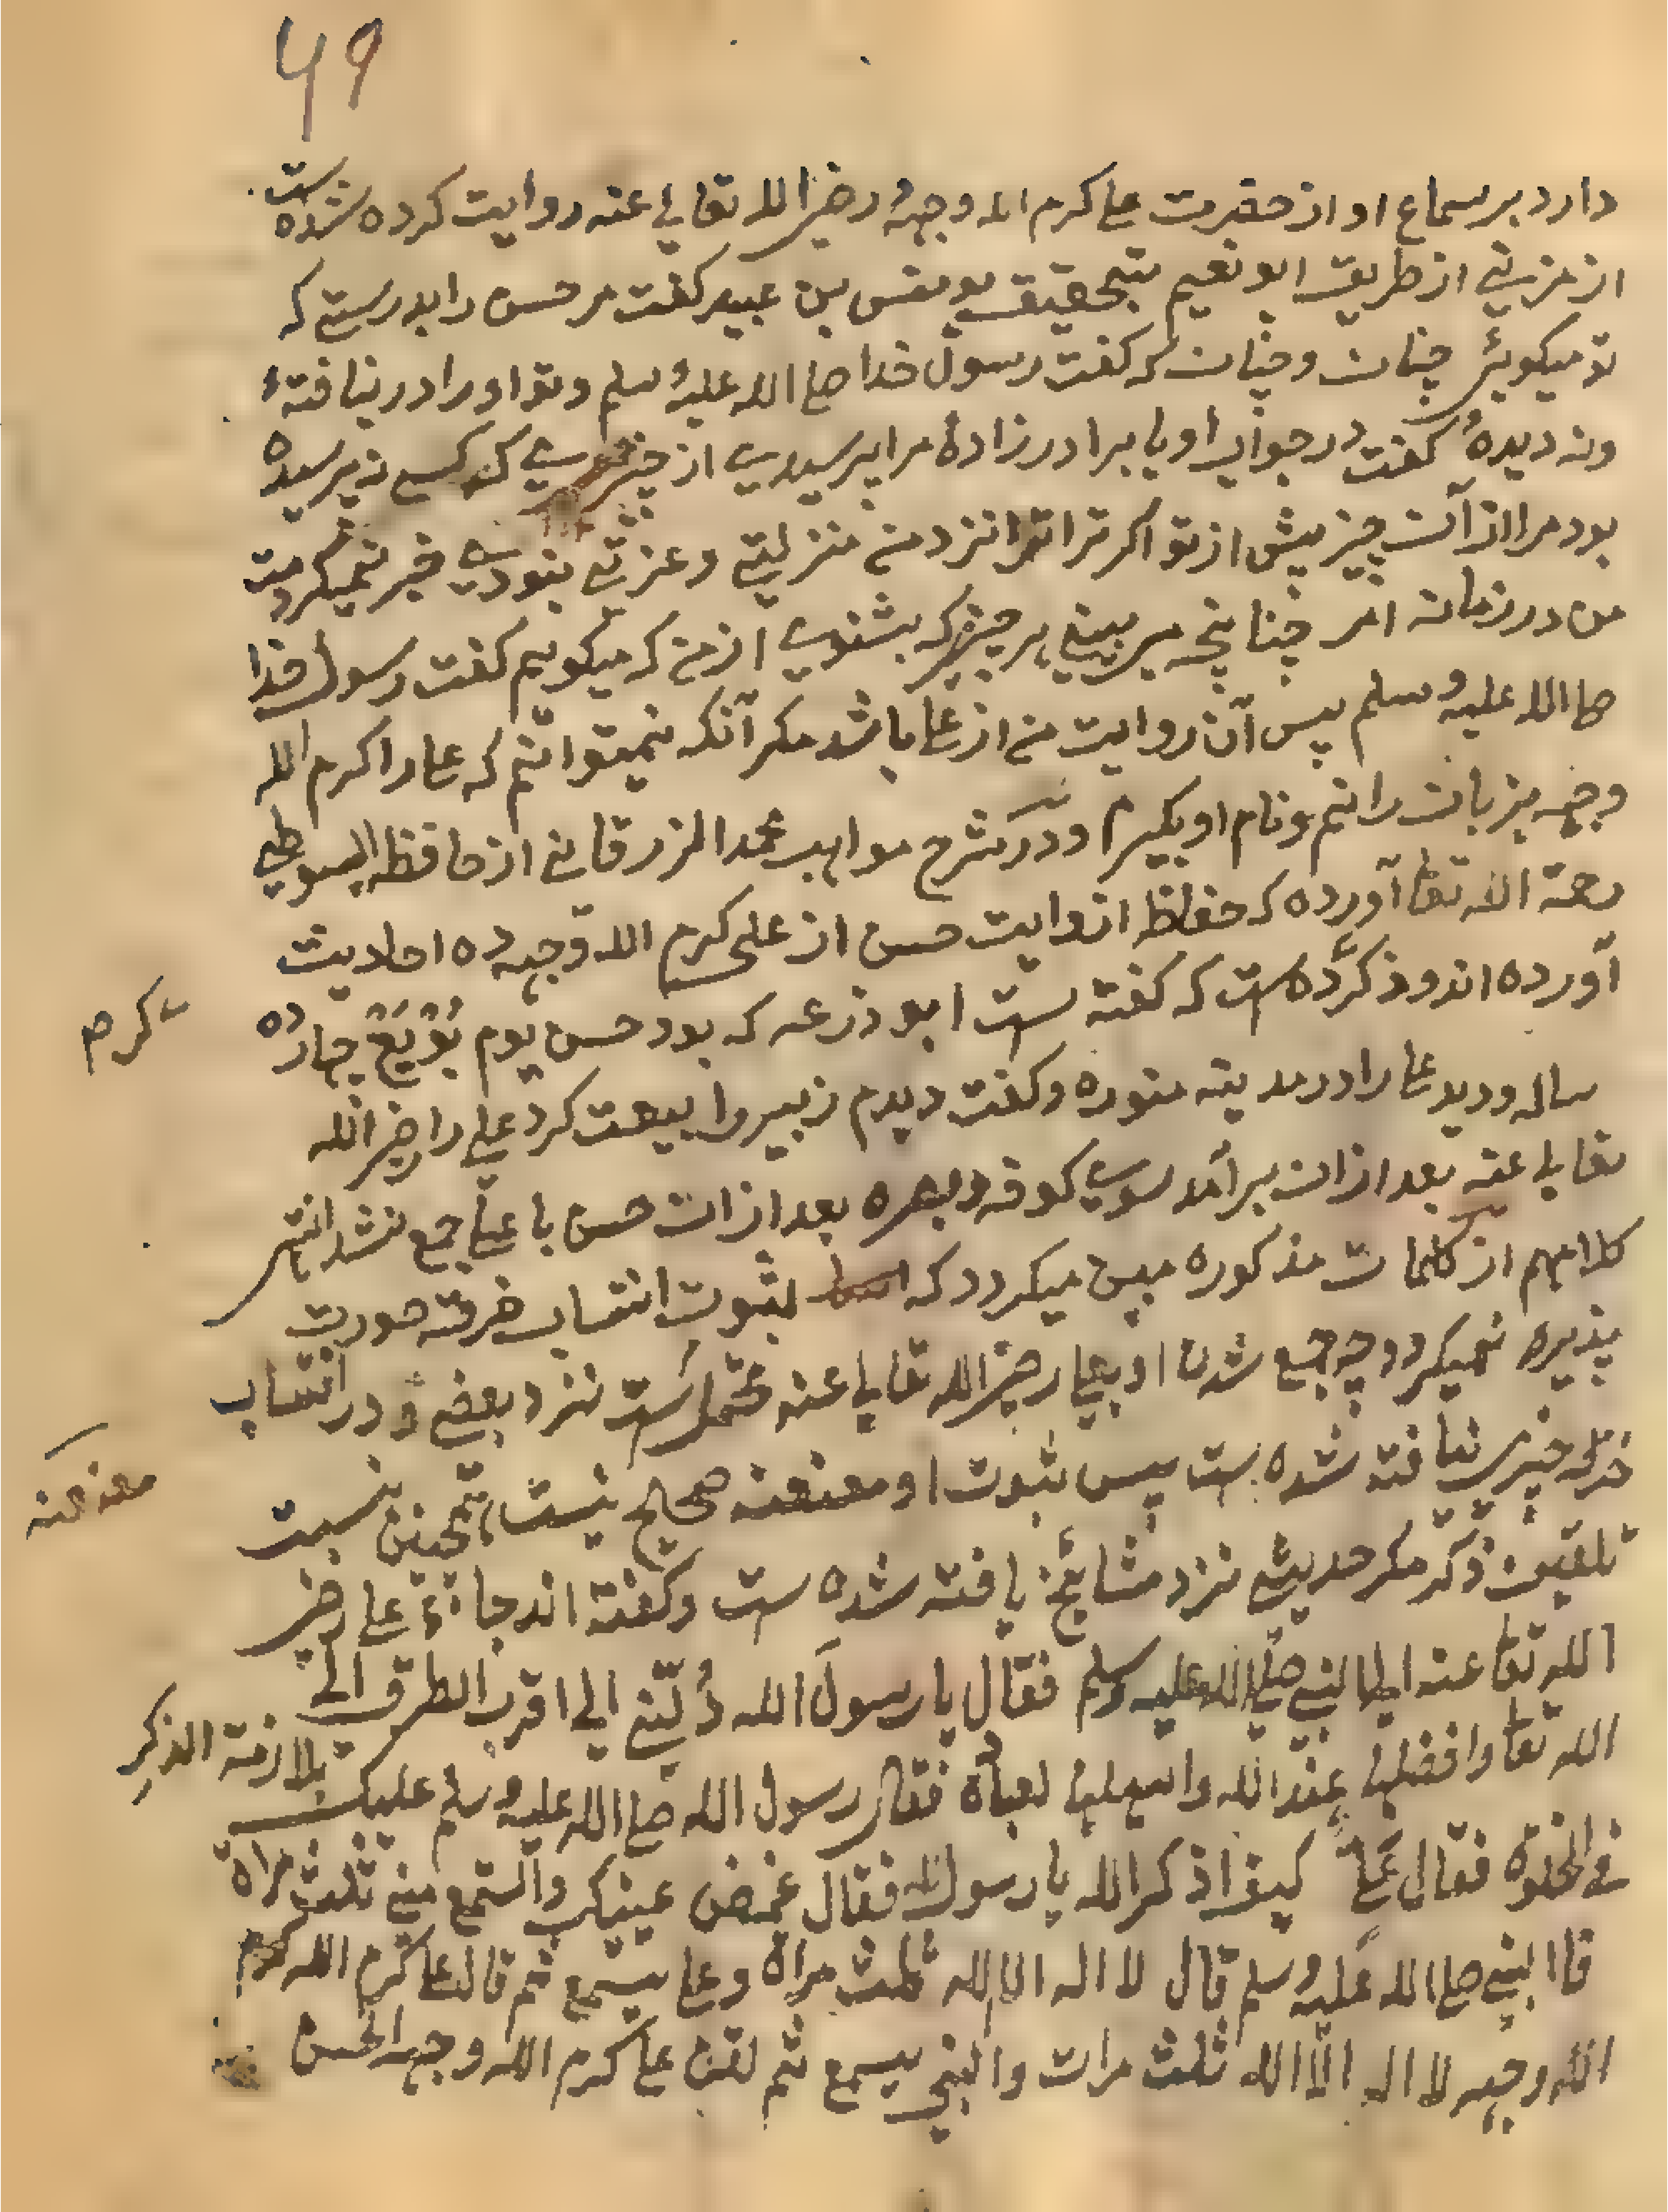 ۶۹
دارد بر سماع او از حضرت علی کرم الله وجهه رضی الله تعالی عنه روایت کرده شده ست
از مزنی از طریق ابو نعیم بتحقیق یونس بن عبید گفت مر حسن را بدرستی که
تو میگوئی چنان و چنان که گفت رسول خدا صلی الله علیه و سلم و تو او را در نیافتهٔ
و نه دیدهٔ گفت در جواب او یا برادر زادهٔ مرا پرسیدی از چیزی که کسی نه پرسیده
بود مرا از آن چیز پیش از تو اگر ترا نزد من منزلتی و عزتی نبودی خبر نمیکردمت
من در زمانه ام چنانچه میبینی هر چیز که بشنوی از من که میگویم گفت رسول خدا
صلی الله علیه و سلم پس آن روایت من از علی باشد مگر آنکه نمیتوانم که علی را کرم الله
وجهه بزبان رانم و نام او بگیرم و در شرح مواهب محمد الزرقانی از حافظ السیوطی
رحمة الله تعا آورده که حفاظ از روایت حسن از علی کرم الله وجهه ده احادیث
آورده اند و ذکر کرده ست که گفته ست ابو ذرعه که بود حسن یوم بُوْیِعَ چهارده
کرم
ساله و دید علی را در مدینه منوره و گفت دیدم زبیر را بیعت کرد علی را رضی الله
تعالی عنه بعد ازان برآمد سوی کوفه و بصره بعد ازان حسن با علی جمع نشد انتهی
کلامهم از کلمات مذکوره مبین میگردد که بثبوت انتساب خرقه صورت
پذیره نمیگردد چه جمع شدن او بعلی رضی الله تعالی عنه محتمل است نزد بعضی و در انتساب
خرقه خبری نیافته شده ست پس ثبوت او معنعنه صحیح نیست همچنین نسبت
معنعنه
تلقین ذکر مگر حدیثی نزد مشایخ یافته شده ست و گفته اند جاءَ علی رضی
الله تعا عنه الی النبی صلی الله علیه وسلم فقال یا رسولَ الله دُلَّنی الی اقرب الطرق الی
الله تعا و افضلها عند الله و اسهلها لعباده فقال رسول الله صلی الله علیه وسلم علیک بملازمة الذکر
فی الخلوة فقال علیٌّ کیف اذکر الله یا رسول الله فقال غمض عینیک واستمع منی ثلث مراة
قا النبی صلی الله علیه وسلم قال لا اله الا الله ثلث مراة و علی یسمع ثم قال علی کرم الله
الله وجهه لا اله الّا الله ثلث مرات والنبی یسمع ثم لقن علی کرم الله وجهه الحسن